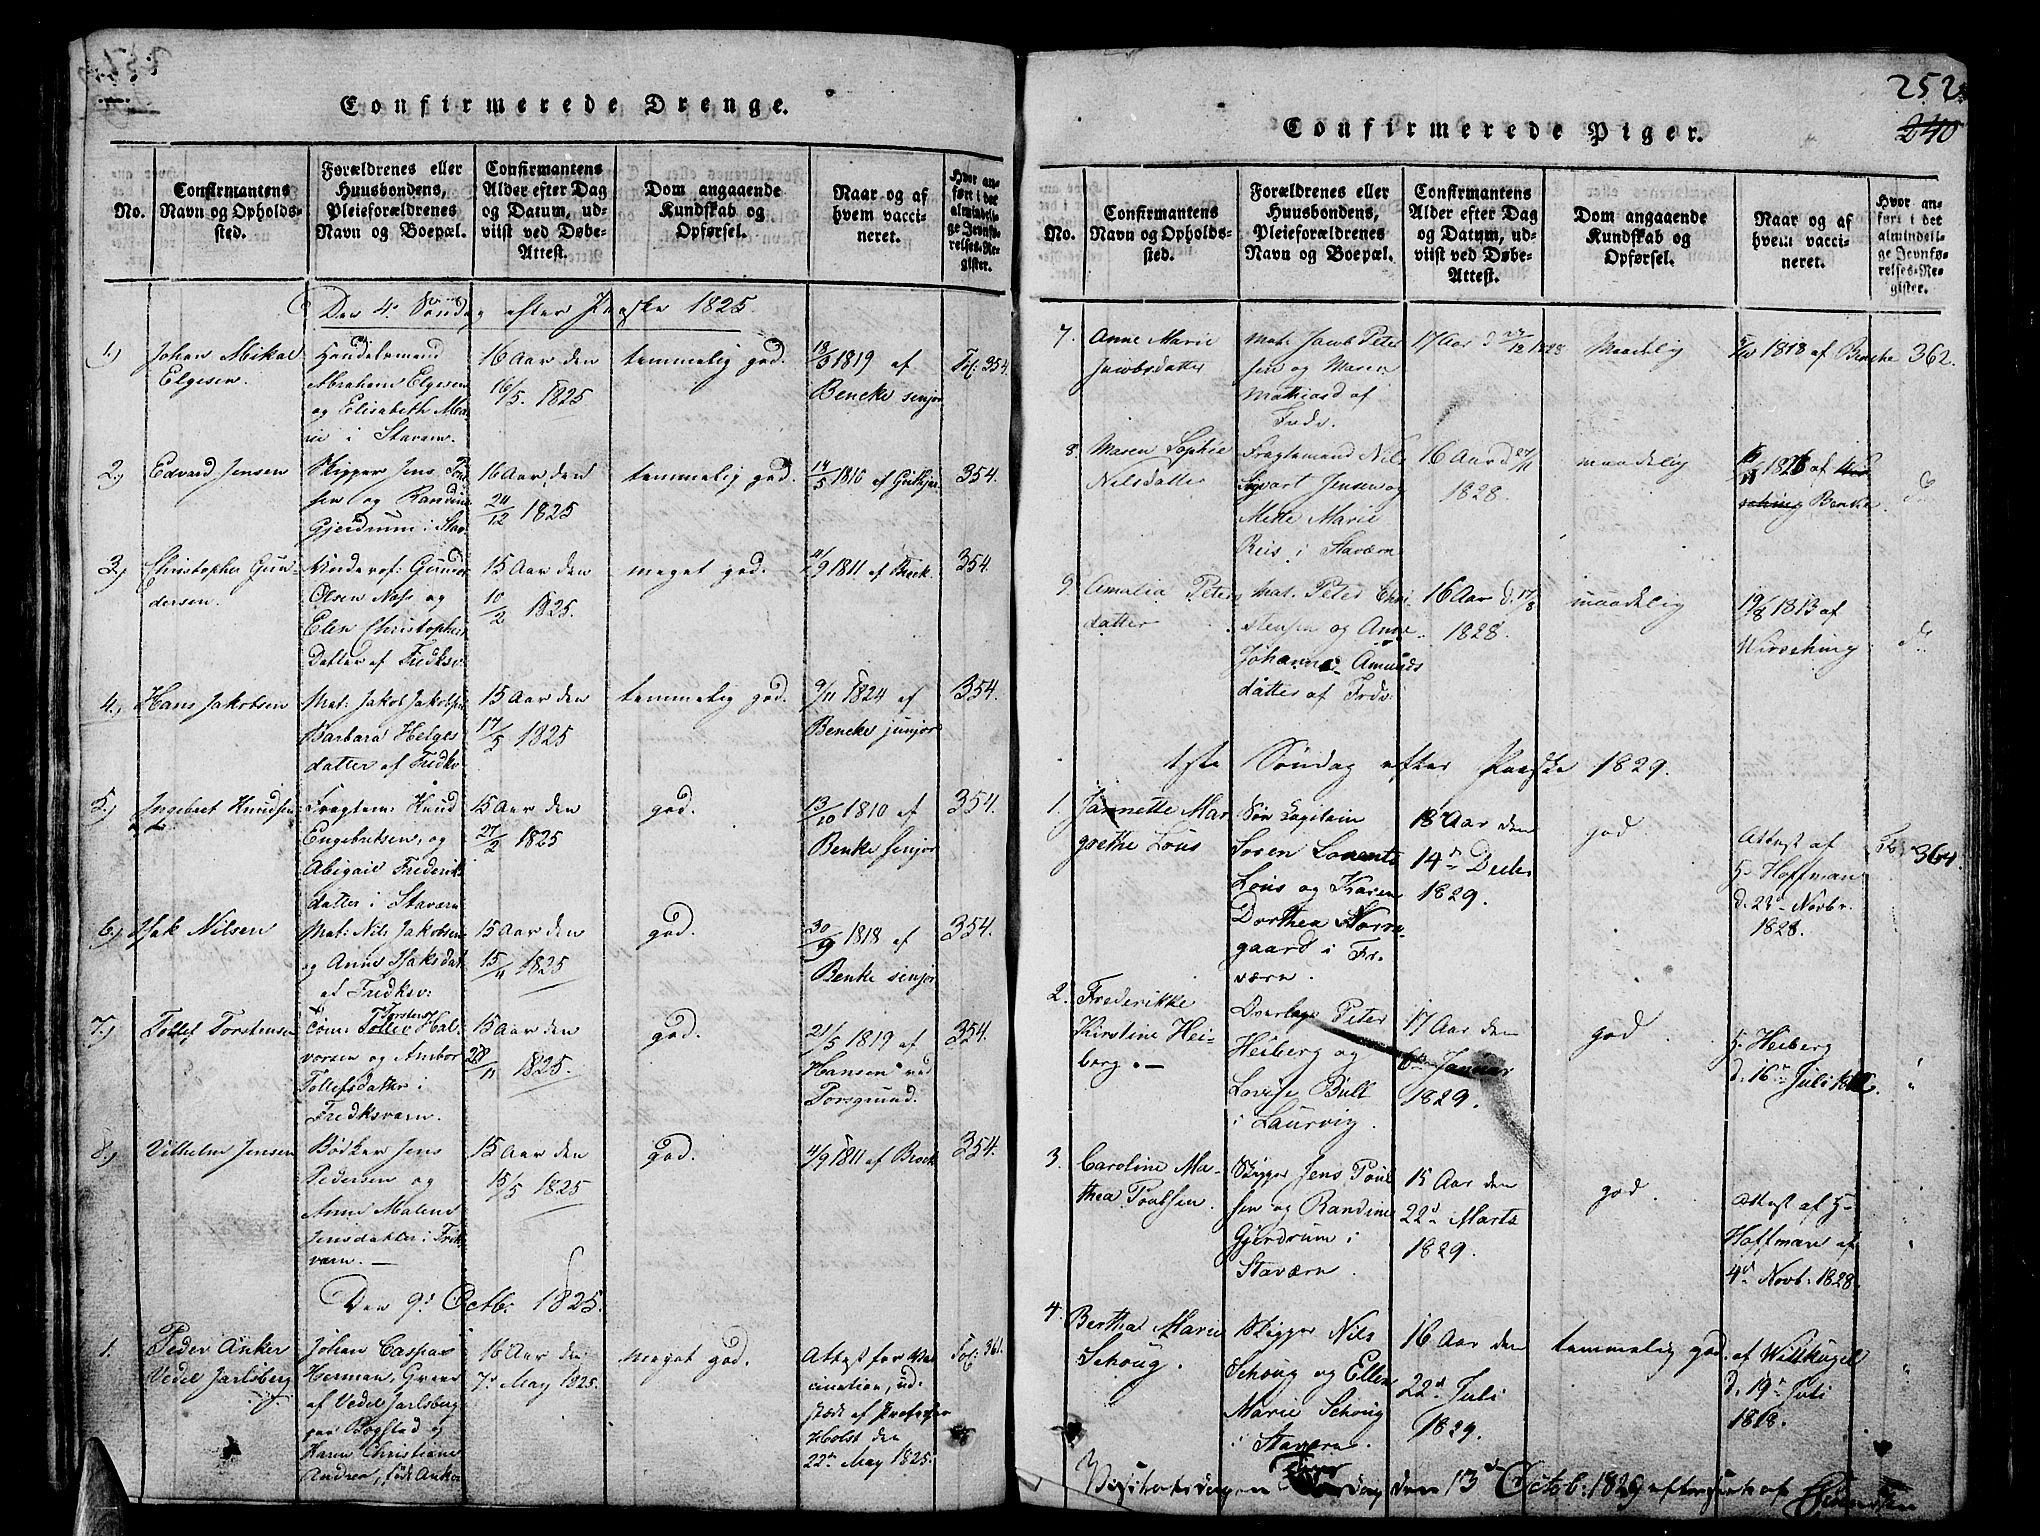 Confirmerede Drenge.
No.
Confirmantens
Navn og Opholds-
sted.
Forældrenes eller
Huusbondens,
Pleieforældrenes
Navn og Boepæl.
Confirmantens
Alder efter Dag
og Datum, ud-
viist ved Døbe-
Attest.
Dom angaaende
Kundskab og
Opførsel.
Naar og af
hvem vacci-
neret.
Hvor an-
ført i det
almindeli-
ge Jevnfø-
relses-Re-
gister.
Den 4. Søndag efter Paaske 1825.
1.)
Johan Mikal
Elgesen.
Handelsmand
Abraham Elgesen
og Elisabeth Ma-
rie i Stavern.
16 Aar den
16/5. 1825
temmelig god.
1819 af
Bencke senjor
Fol: 354.
2.)
Edvard Jensen
Skipper Jens Poul-
sen og Randine
Gjerdrum i Stav
16 Aar den
24/12 1825
temmelig god.
14/5 1810 af
354.
3.)
Christopher Gun-
dersen.
Underof: Gunder
Olsen Næss og
Elen Christophers
Datter af Fredksv.
15 Aar den
10/2 1825.
meget god.
4/9 1811 af Brock.
354.
4.)
Hans Jakobsen
Mat: Jakob Jakobsen
Barbara Helges
datter af Fredksv.
15 Aar den
17/5 1825
temmelig god.
9/11 1824 af
Bencke junjor
354.
5.)
Ingebret Knudsen
Fragtem: Knud
Engebretsen, og
Abigail Frederiks
datter i Staværn
15 Aar den
27/2 1825
god.
13/10 1810 af
Benke senjor
354.
6.)
Isak Nilsen
Mat: Nils Jakobsen
og Anne Isaksdat
af Fredksv:
15 Aar den
15/4 1825
god.
1818 af
Benke senjor
354.
7.)
Tollef Torstensen
Tøm: Torsten Hal-
vorsen og Ambor
Tollefsdatter i
Fredksvarn.
15 Aar den
28/11 1825.
god.
21/5 1819 af
Hansen ved
Porsgrund.
354.
8.)
Vilhelm Jensen
Bødker Jens
Pedersen og
Anne Malene
Jensdatter i Frk-
varn. —
15 Aar den
15/5 1825
god.
4/9 1811 af Brock
354.
Den 9d Octb. 1825.
1.
Peder Anker
Vedel Jarlsberg
Johan Caspar
Herman, Grev
af Vedel Jarlsberg
paa Bogstad og
Karen Christiane
Andrea, født Anker
16 Aar den
7d May 1825.
meget god.
Attest for Vac
cination, ud-
stædt af Professor
Holst den
22de May 1825.
Fol: 361.
252
240
Confirmerede Piger.
No.
Confirmantens
Navn og Opholds-
sted.
Forældrenes eller
Huusbondens,
Pleieforældrenes
Navn og Boepæl.
Confirmantens
Alder efter Dag
og Datum, ud-
viist ved Døbe-
Attest.
Dom angaaende
Kundskab og
Opførsel.
Naar og af
hvem vacci-
neret.
Hvor an-
ført i det
almindeli-
ge Jevnfø-
relses-Re-
gister.
7.
Anne Marie
Jacobsdatter
Mat. Jacob Peter
sen og Maren
Mathiasd af
Frdv.
17 Aar d 1828
Maadelig
1818 af Bencke
362.
8.
Maren Sophie
Nilsdatter
Fragtemand Nils
Sivart Jensen og
Mette Marie
Reis i Staværn
16 Aar d 27/11
1828.
maadelig
af
Bencke.
do
9.
Amalia Peters
datter
Mat. Peter Chri-
stensen og Anne
Johanne Amunds
datter af Frdv:
16 Aar d. 17/8
1828.
maadelig
19/8 1813 af
Wirsching
do
1ste Søndag efter Paaske 1829.
1.
Jannette Mar
grethe Lous
Søe Capitain
Søren Lorents
Lous og Karen
Dorthea Norre-
gaard i Fr.
værn.
18 Aar den
14de Decbr
1829.
god
Attest af
Hoffman
d. 23de Novbr.
1828.
Fol: 364.
2.
Frederikke
Kirstine Hei-
berg. —
Overlæge Peter
Heiberg og
Lovise Bull
i Laurvig.
17 Aar den
6te Januar
1829.
god
Heiberg
d. 16de Juli
"
3.
Caroline Ma-
thea Poulsen.
Skipper Jens Poul
sen og Randine
Gjerdrum i
Staværn.
15 Aar den
22d Marts
1829.
god.
Attest af
Hoffman af
4d Novb: 1828.
"
4.
Bertha Marie
Schoug.
Skipper Nils
Schoug og Ellen
Marie Schoug
i Staværn.
16 Aar den
22d Juli
1829.
temmelig god.
af Wittkugel
d. 19de Juli
1818.
"
Visitatsdagen den 13de Octob: 1829 efterseet af